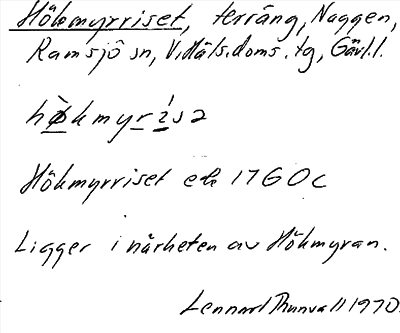 Hökmyrriset, terräng, Naggen,
Ramsjö sn, V. Häls. doms. tg, Gävl. l.
hø̀kmyrísə
Hökmyrriset ek 17G 0c
Ligger i närheten av Hökmyran.
Lennart Thunvall 1970.